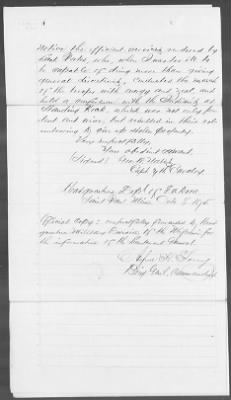 notice the efficient services rendered by
who, when
to be capable of doing more than giving
general directions, conducted the march
of the troops with energy and zeal, and
held a conference with the Indians at
Standing Rock, which was not only
and wise, but resulted in their
to give up stolen property.
Very respectfully,
Your obedient servant,
Signed:
Capt 7th Cavalry.
Headquarters Dept of Dakota
Saint Paul Minn
Official Copy: respectfully forwarded to Head
quarters Military Division of the Missouri for
the information of the Lieutenant General.
Alfred H. Terry
Brig Genl. Commanding